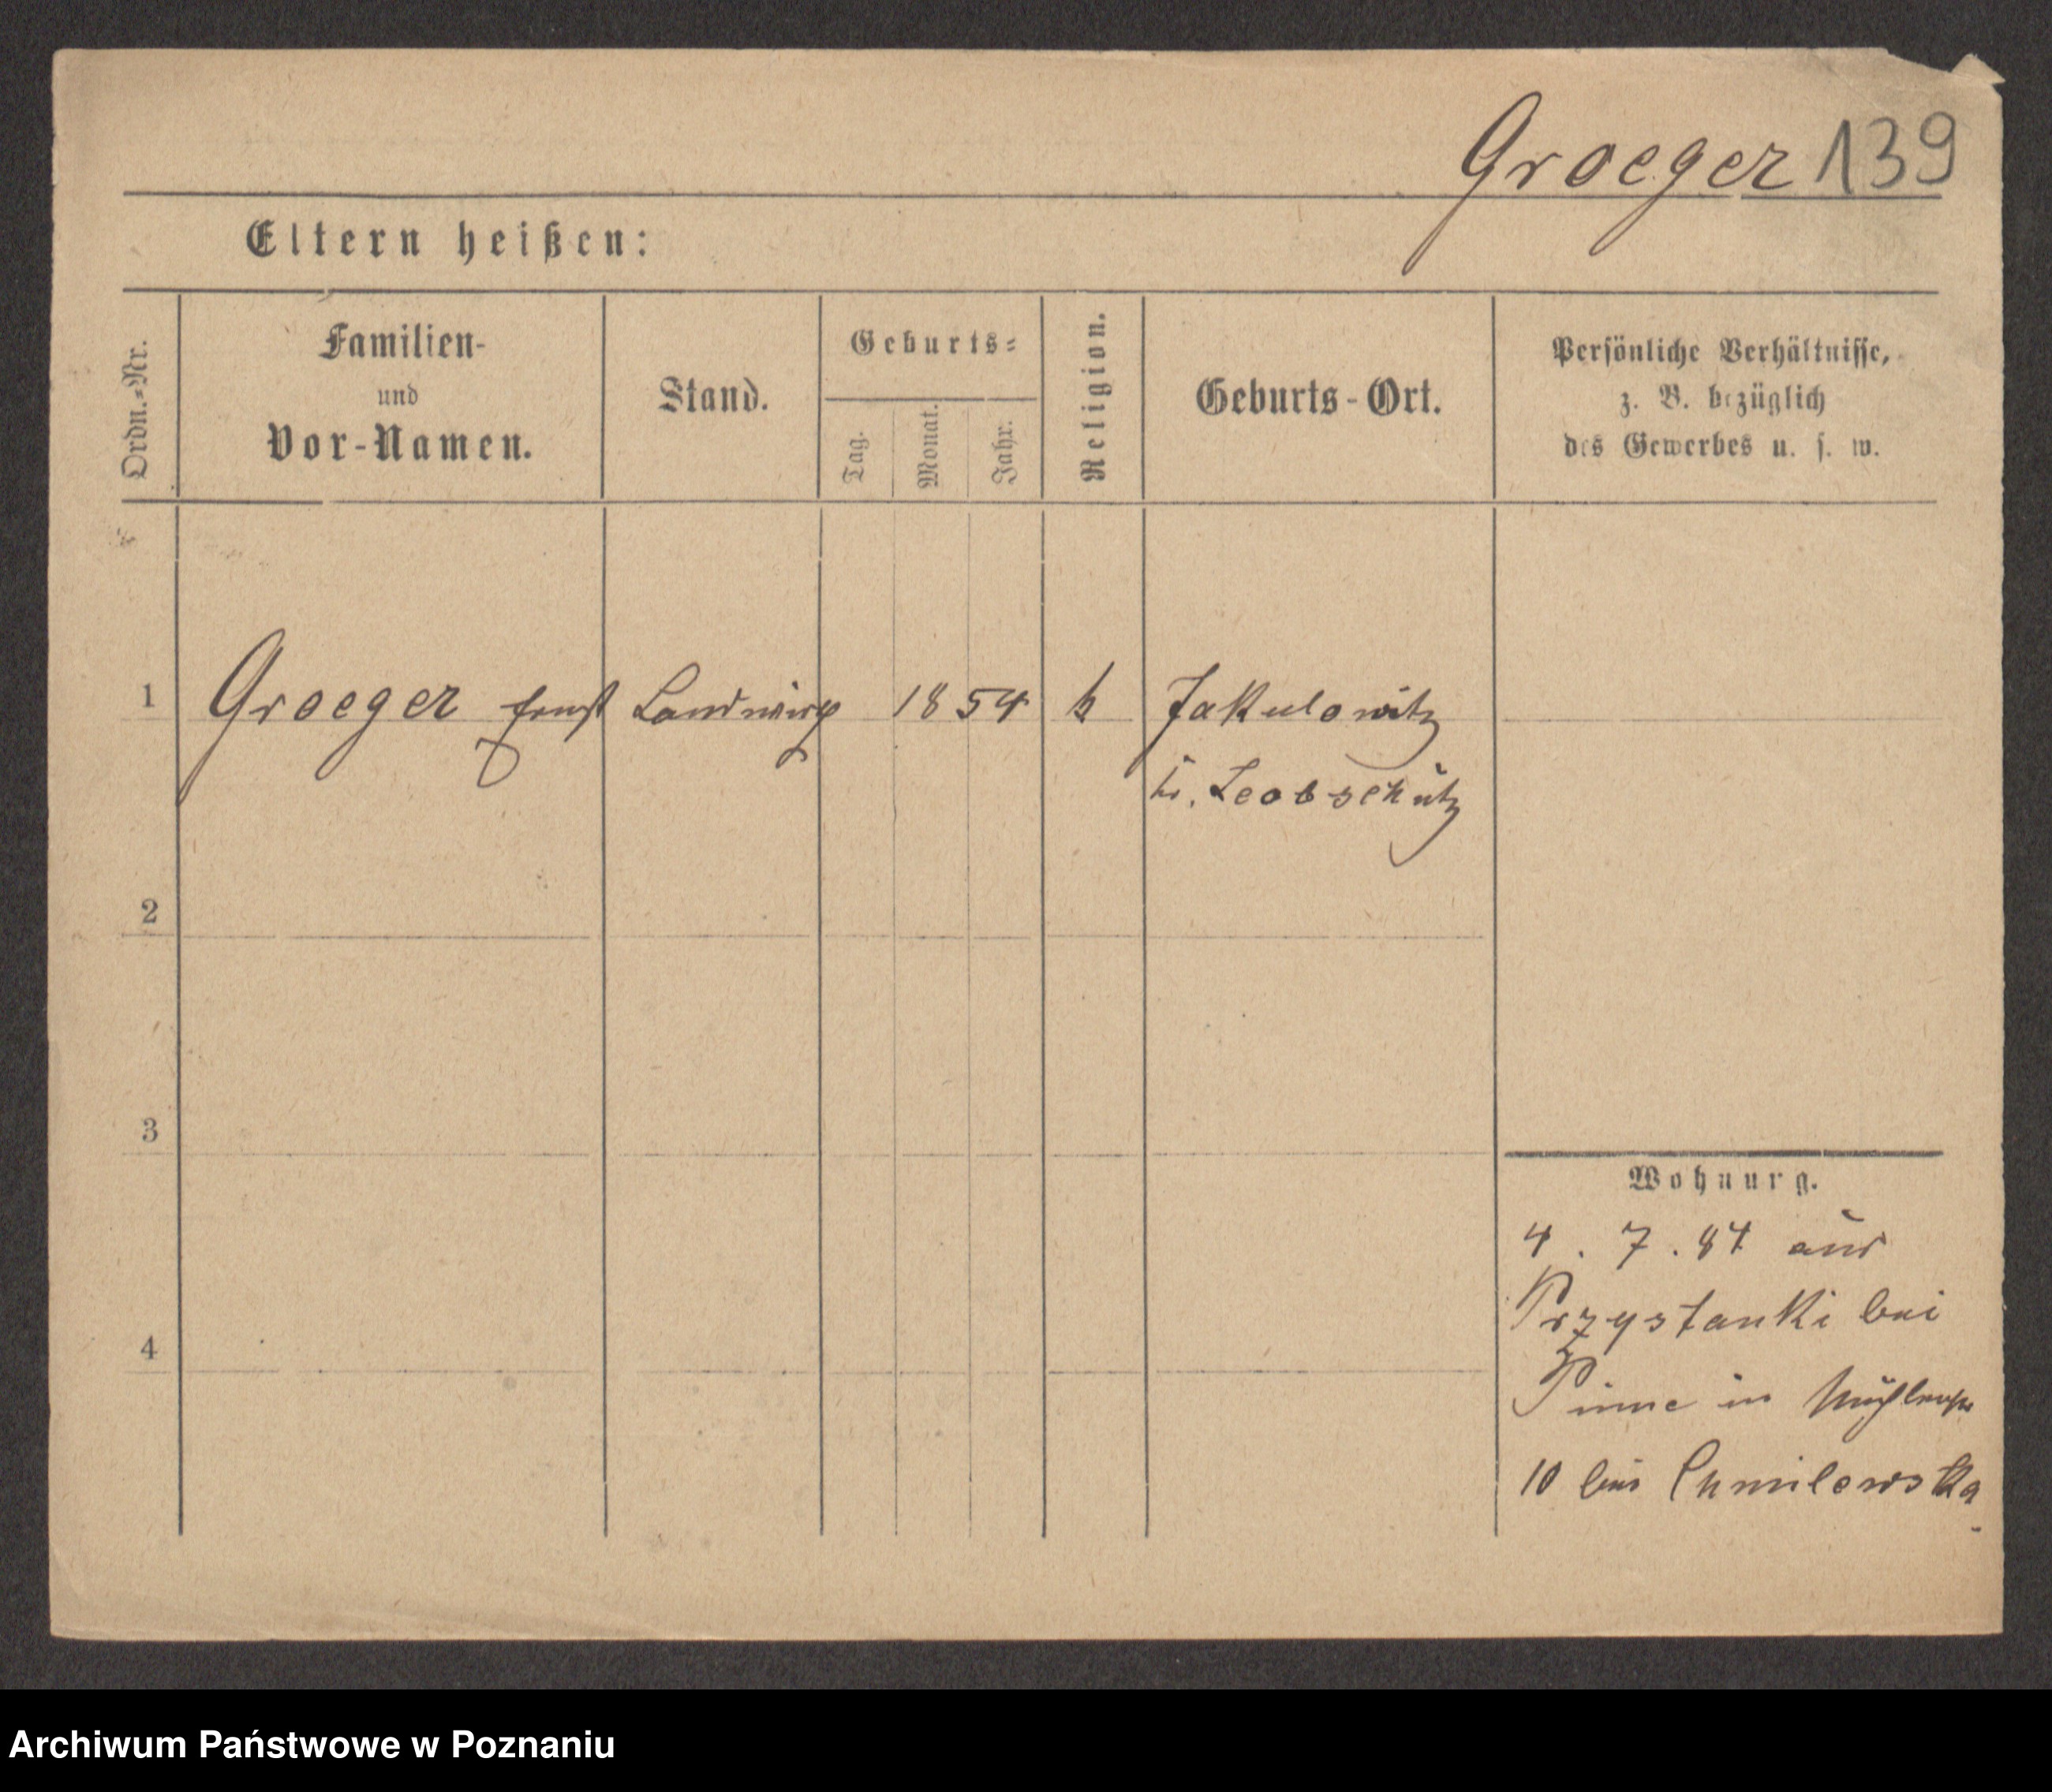 Groeger 139
Eltern heißen:
Ordn.-Nr.
Familien-
und
Vor-Namen.
Stand.
Geburts-
Tag.
Monat.
Jahr.
Religion.
Geburts-Ort.
Persönliche Verhältnisse,
z. B. bezüglich
des Gewerbes u. s. w.
1 Groeger Ernst Landwirth 1854 k Jakulowitz
Kr. Leobschütz
2
3
4
Wohnung.
4. 7. 84 aus
Przystanki bei
Pinne in Mühlenstr
10 bei Chmilewska
Archiwum Państwowe w Poznaniu